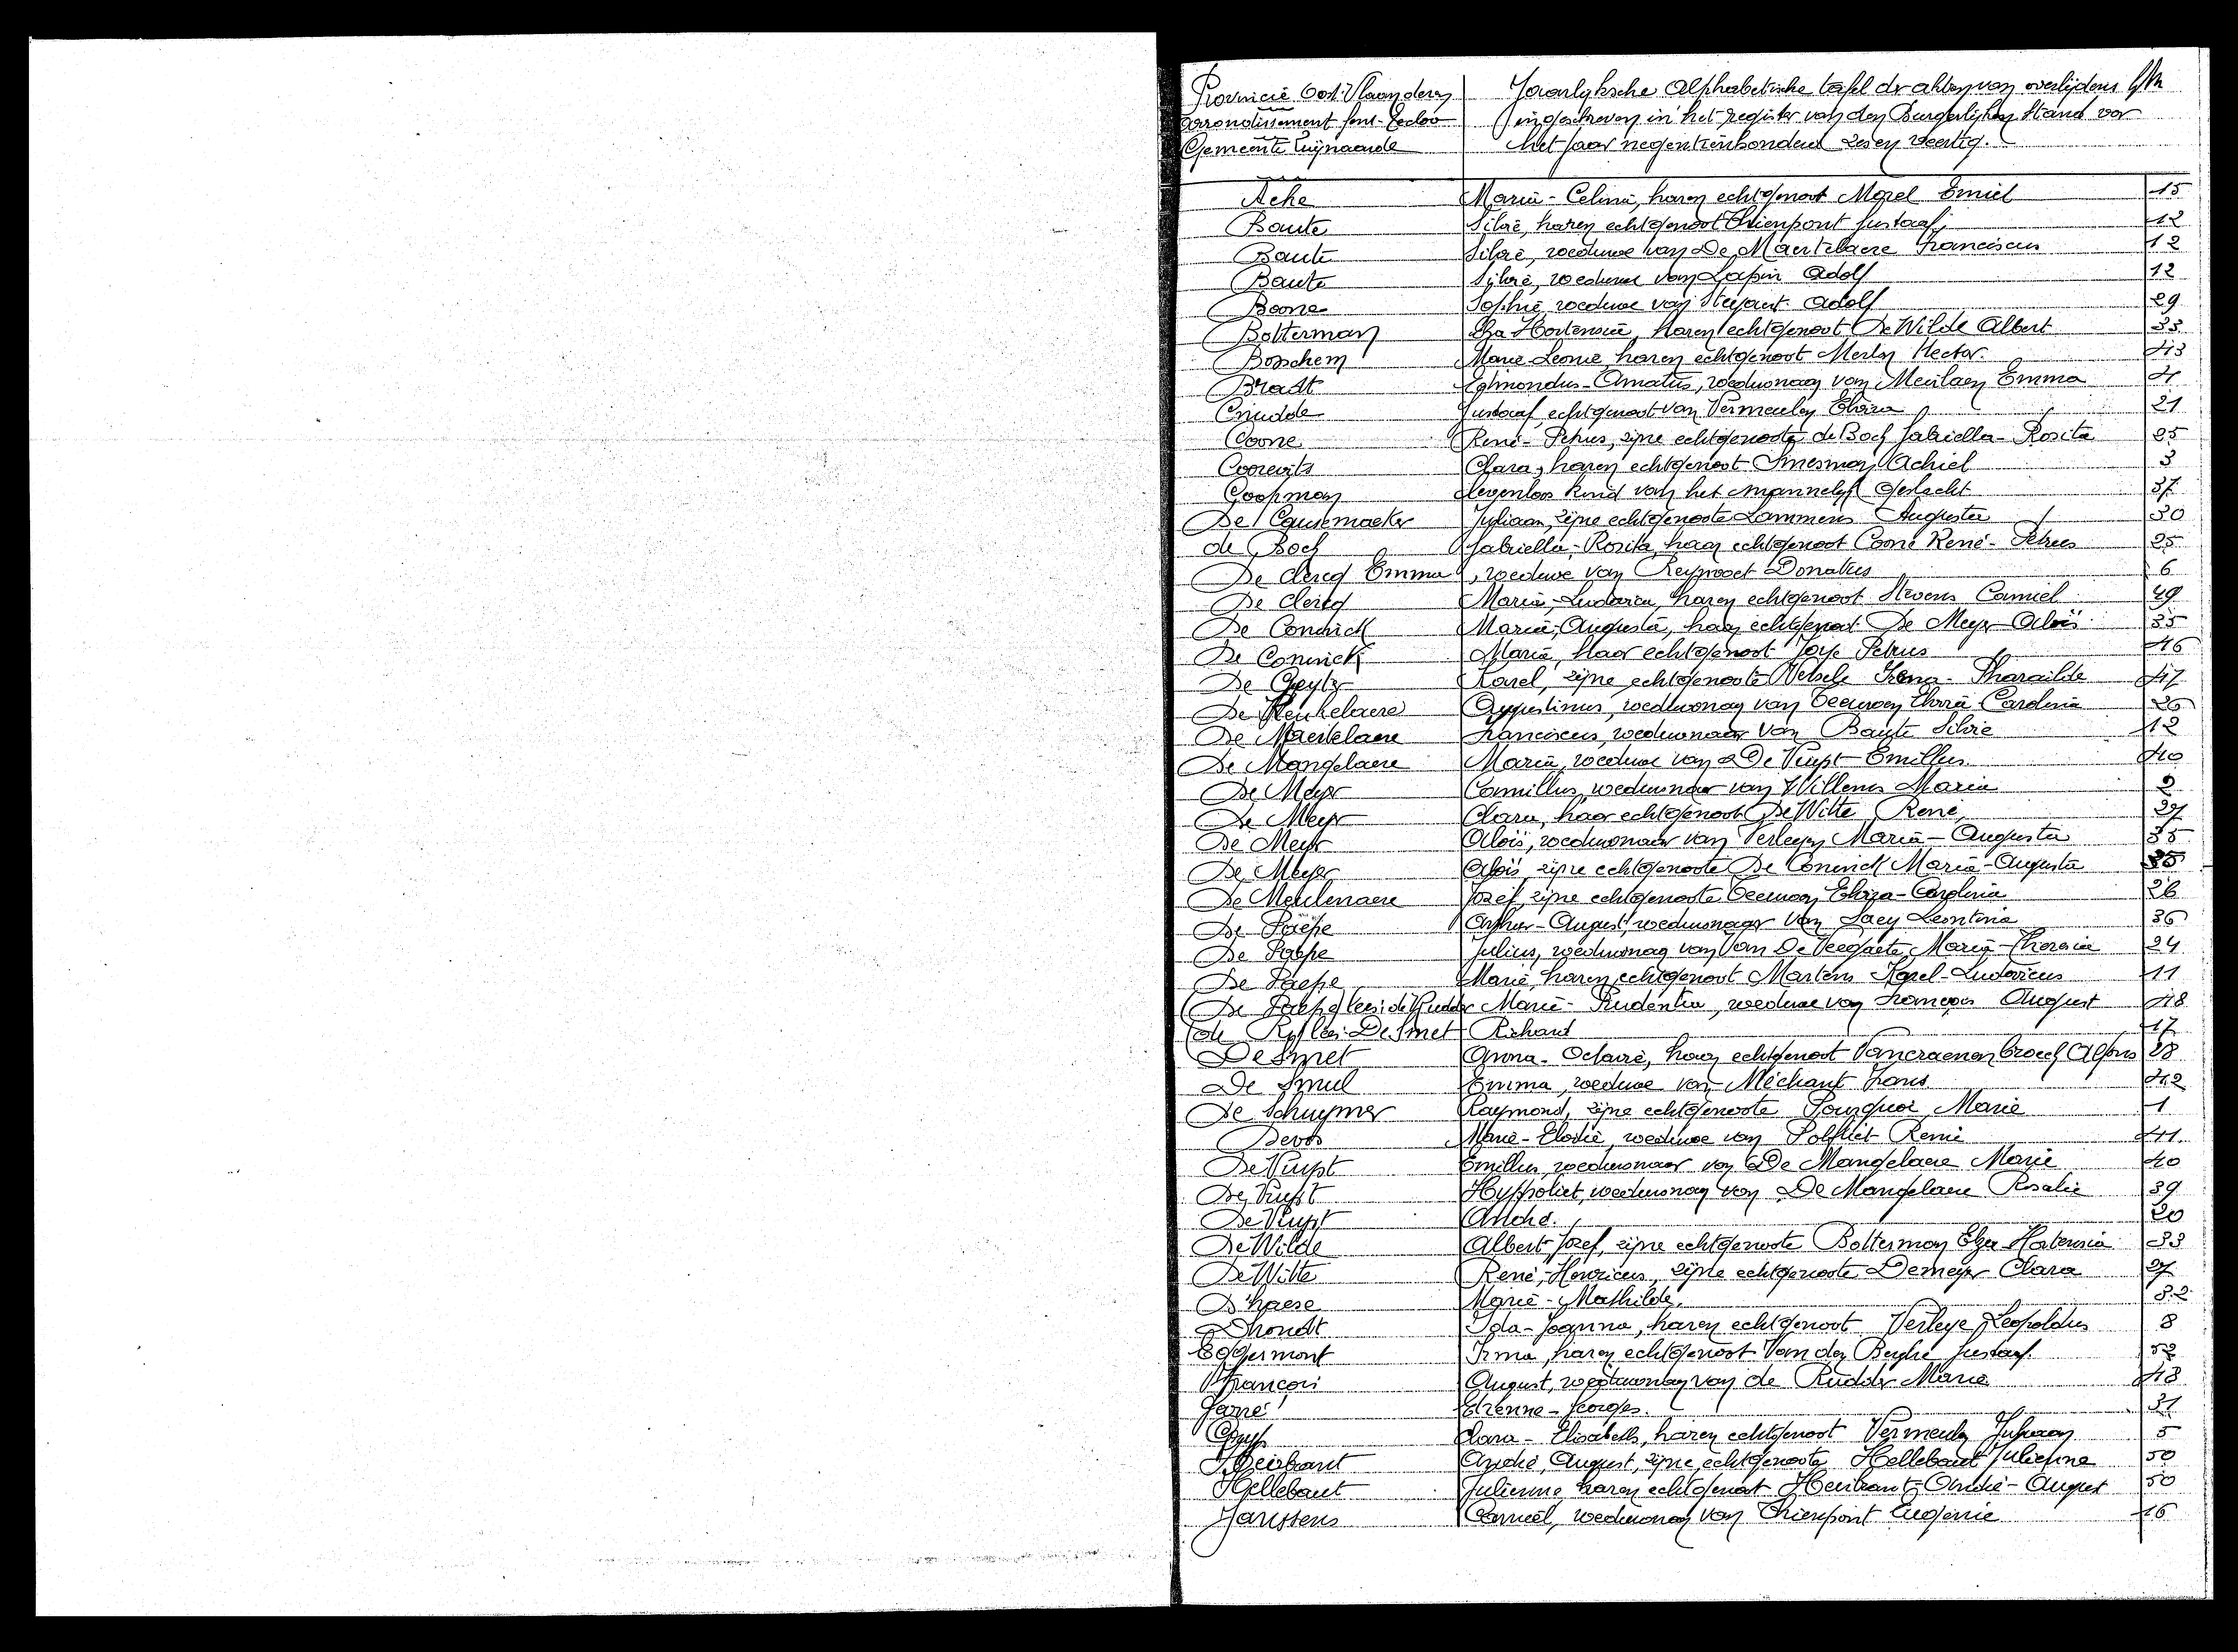 Provincie Oost-Vlaanderen
Arrondissement Gent-Eecloo
Gemeente Zwijnaarde
Jaarlyksche Alphabetische tafel der akten van overlijdens
ingeschreven in het register van den Burgerlijken Stand voor
het jaar negentienhonderd zes en veertig.
Acke Maria-Celina, haren echtgenoot Morel Emiel 15
Baute Silvie, haren echtgenoot Thienpont Gustaaf 12
Baute Silvie, weduwe van De Maertelaere Franciscus 12
Baute Silvie, weduwe van Lapin Adolf 12
Boone Sophie, weduwe van Steyaert Adolf 29
Bolterman Elza Hortensia, haren echtgenoot De Wilde Albert 33
Bosschem Marie-Leonie, haren echtgenoot Merlen Hector 43
Bradt Egmondus-Amatus, weduwnaar van Meulaen Emma 4
Cnudde Gustaaf echtgenoot van Vermeulen Elvira 21
Coone René-Petrus, zijne echtgenoote de Bock Gabriella-Rosita 25
Coorevits Clara, haren echtgenoot Smesman Achiel 3
Coopman Levenloos kind van het mannelijk geslacht 37
De Causemaeker Juliaan, zijne echtgenoote Lammens Augusta 30
de Bock Gabriella-Rosita, haar echtgenoot Coone René-Petrus 25
De Clercq Emma, weduwe van Donatus 6
De Clercq Maria-Ludovica, haren echtgenoot Stevens Camiel 49
De Coninck Maria-Augusta, haar echtgenoot De Meyer Aloïs 35
De Coninck Maria, haar echtgenoot Petrus 46
De Geyter Karel, zijne echtgenoote Irena-Pharaïlde 47
De Keukelaere Augustinus, weduwnaar van Elvira Carolina 26
De Maertelaere Franciscus, weduwnaar van Baute Silvie 12
De Mangelaere Maria, weduwe van De Vuyst Emillus 40
De Meyer Camillus, weduwnaar van Willems Maria 2
De Meyer Clara, haar echtgenoot De Witte René 27
De Meyer Aloïs, weduwnaar van Verleyen Maria-Augusta 35
De Meyer Aloïs, zijne echtgenoote De Coninck Maria-Augusta 35
De Meulenaere Jozef, zijne echtgenoote Elvira-Carolina 26
De Paepe Arthur-August, weduwnaar van Leontina 36
De Paepe Julius, weduwnaar van Van De Veegaete Maria-Theresia 24
De Paepe Marie, haren echtgenoot Martens Karel-Ludovicus 11
De Paepe lees: de Rudder Marie-Prudentia, weduwe van François August 48
de lees: De Smet Richard 17
De Smet Anna-Octavie, haar echtgenoot Vancraenenbroeck Alfons 28
De Smul Emma, weduwe van Méchant 42
De Schuymer Raymond, zijne echtgenoote Pourquoi Marie 1
Devos Marie-Elodie, weduwe van Polfliet Remi 41
De Vuyst Emillus, weduwnaar van De Mangelaere Marie 40
De Vuyst Hyppoliet, weduwnaar van De Mangelaere Rosalie 39
De Vuyst André. 20
De Wilde Albert Jozef, zijne echtgenoote Bolterman Elza Hortensia 33
De Witte René-Henricus, zijne echtgenoote Demeyer Clara 27
D'haese Marie-Mathilde. 32
Dhondt Ida-Joanna, haren echtgenoot Verleye Leopoldus 8
Eggermont Irma, haren echtgenoot Van den Berghe Gustaaf. 52
François August, weduwnaar van de Rudder Maria 48
Garré Etienne-Georges. 31
Gryp Clara-Elisabeth, haren echtgenoot Vermeulen Juliaan 5
Heirbaut André, August, zijne echtgenoote Hellebaut Julienne 50
Hellebaut Julienne haren echtgenoot Heirbaut-André-August 50
Janssens Camiel, weduwnaar van Thienpont Eugenie 16